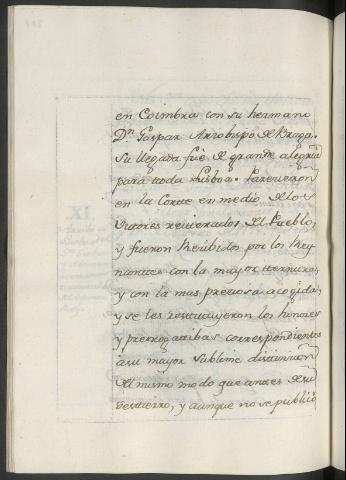 en Coimbra con su hermano
Dn Gaspar Arzobispo de Braga.
Su llegada fué de grande alegria
para toda Lisboa. Parecieron
en la Corte en medio de los
Vitores reiterados del Pueblo,
y fueron recibidos por los Rey
nantes con la mayor ternura,
y con la mas preciosa acogida,
y se les restituyeron los honores
y prerrogatibas correspondientes
à su mayor sublime distincion
del mismo modo que antes de su
destierro, y aunque no se publicó